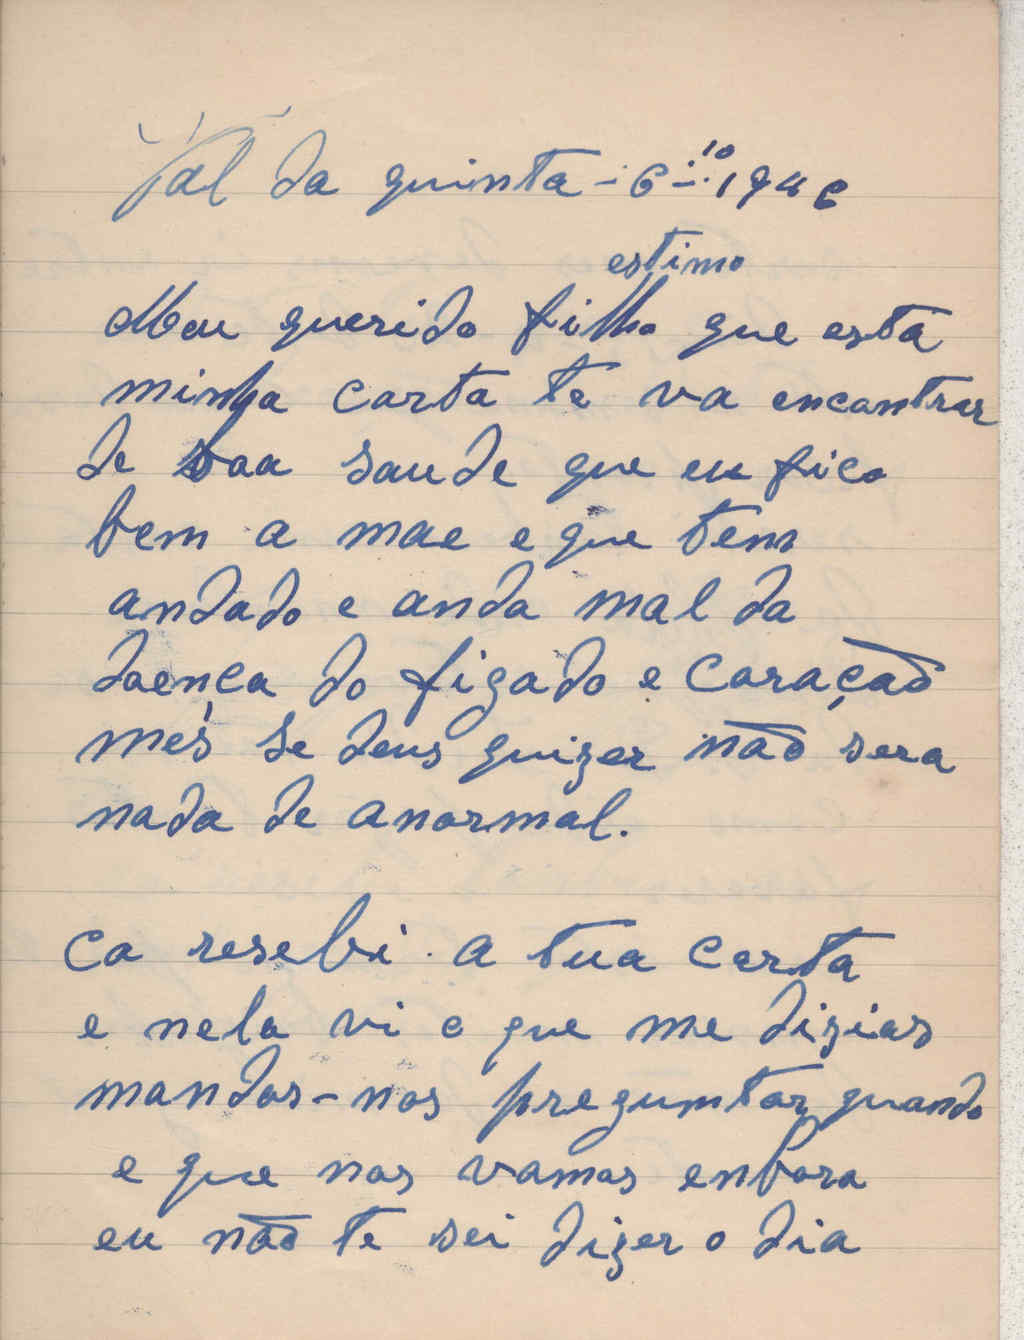 Val da quinta - 6 - 10 - 1946
estimo
Meu querido filho que esta
minha carta te va encontrar
de boa saude que eu fico
bem a mae e que tem
andado e anda mal da
doenca do figado e coração
més se deus quizer não sera
nada de anormal.
Ca resebi a tua carta
e nela vi o que me dizias
mandas-nos pregumtar quando
e que nos vamos enbora
eu não te sei dizer o dia